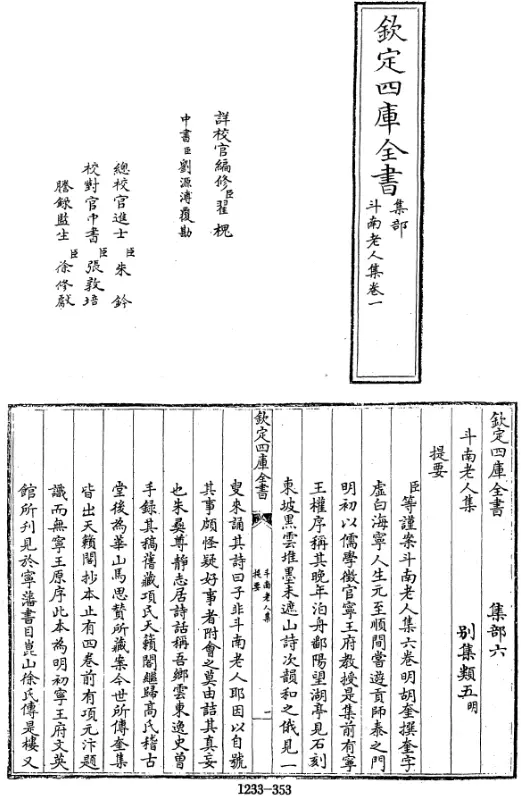 欽定四庫全書
集部
斗南老人集卷一
詳校官編修臣翟槐
中書臣劉源溥覆勘
總校官進士臣朱鈐
校對官中書臣張敦培
謄錄監生臣徐修獻
欽定四庫全書
集部六
斗南老人集
别集類五明
提要
臣等謹案斗南老人集六卷明胡奎撰奎字
虚白海寧人生元至順間嘗遊貢師泰之門
明初以儒學徵官寧王府教授是集前有寧
王權序稱其晚年泊舟鄱陽望湖亭見石刻
東坡黑雲堆墨未遮山詩次韻和之俄見一
欽定四庫全書
斗南老人集
提要
一
叟來誦其詩曰子非斗南老人耶因以自號
其事頗怪疑好事者附會之莫由詰其真妄
也朱彝尊静志居詩話稱吾鄉雲東逸史曾
手錄其稿舊藏項氏天籟閣繼歸高氏稽古
堂後為華山馬思贊所藏案今世所傳奎集
皆出天籟閣抄本止有四卷前有項元汴題
識而無寧王原序此本為明初寧王府文英
館所刊見於寧藩書目崑山徐氏傳是樓又
1233-353